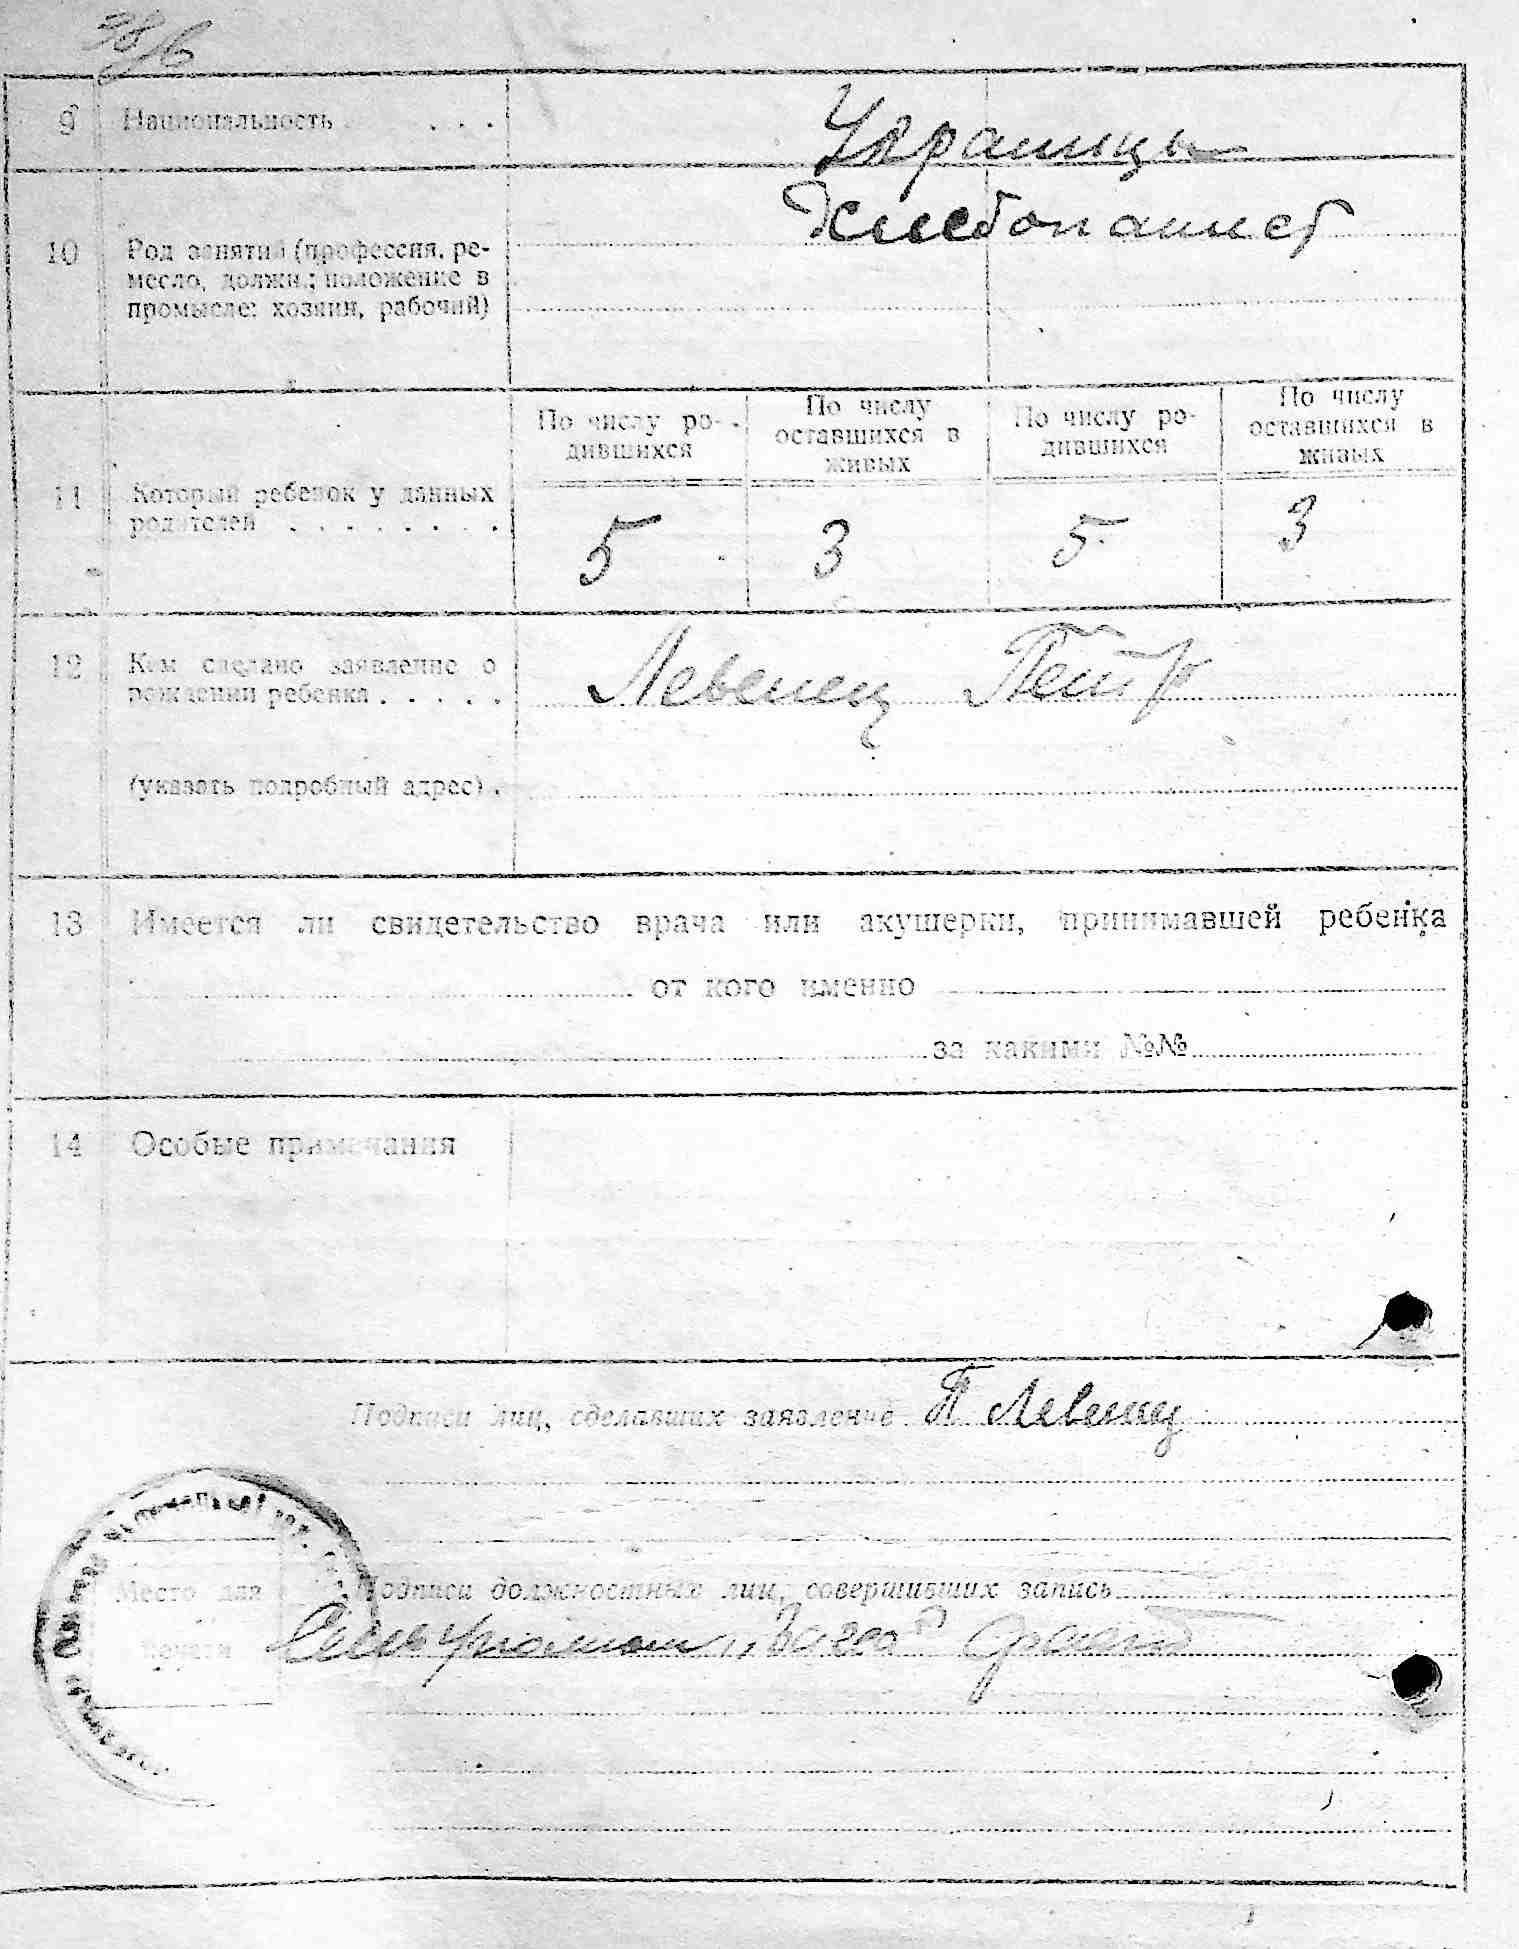 9 Национальность . . .
Украинцы
10 Род занятий (профессия, ре-
месло, должн.; положение в
промысле: хозяин, рабочий)
Хлебопашест
По числу ро-
дившихся
По числу
оставшихся в
живых
По числу ро-
дившихся
По числу
оставшихся в
живых
11 Который ребенок у данных
родителей . . . . . . . .
5 3 5 3
12 Кем сделано заявление о
рождении ребенка . . . . .
Левенец Петр
(указать подробный адрес) .
13 Имеется ли свидетельство врача или акушерки, принимавшей ребенка
от кого именно
за какими №№
14 Особые примечания
Подписи лиц, сделавших заявление П Левенец
Место для
печати
Подписи должностных лиц, совершивших запись